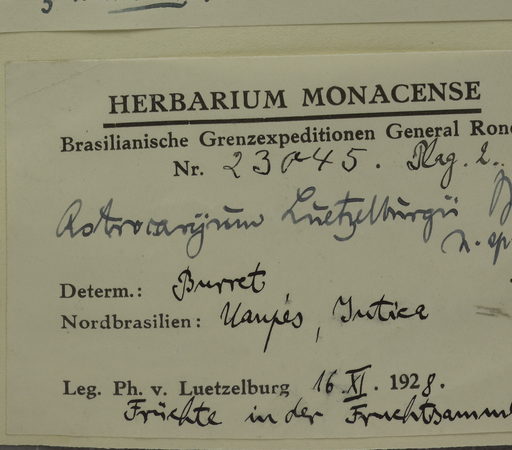 HERBARIUM MONACENSE
Brasilianische Grenzexpeditionen General Rond
Nr. 23045. Plag. 2.
Astrocaryum Luetzelburgii
n. sp
Determ.: Burret
Nordbrasilien: Uaupés, Jutica
Leg. Ph. v. Luetzelburg 16. XI. 1928.
Früchte in der Fruchtsamml